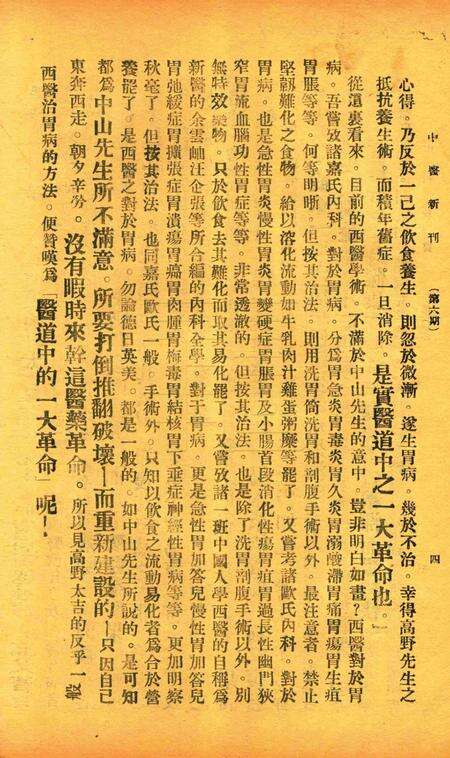 中醫新刊
（第六期）
四
心得。乃反於一己之飲食養生。則忽於微漸。遂生胃病。幾於不治。幸得高野先生之
抵抗養生術。而積年舊症。一旦消除。是實醫道中之一大革命也。」
從這裏看來。目前的西醫學術。不滿於中山先生的意中。豈非明白如畫？西醫對於胃
病。吾嘗攷諸嘉氏內科。對於胃病。分爲胃急炎胃毒炎胃久炎胃溺酸滯胃痛胃瘍胃生疽
胃脹等等。何等明晰。但按其治法。則用洗胃筒洗胃和剖腹手術以外。最注意者。禁止
堅韌難化之食物。給以溶化流動如牛乳肉汁雞蛋粥糜等罷了。又嘗考諸歐氏內科。對於
胃病。也是急性胃炎慢性胃炎胃變硬症胃脹胃及小腸首段消化性瘍胃疽胃過長性幽門狹
窄胃流血腦功性胃症等等。非常透澈的。但按其治法。也是除了洗胃剖腹手術以外。別
無特效藥物。只於飲食去其難化而取其易化罷了。又嘗攷諸一班中國人學西醫的自稱爲
新醫的余雲岫汪企張等所合編的內科全學。對于胃病。更是急性胃加答兒慢性胃加答兒
胃弛緩症胃擴張症胃潰瘍胃癌胃肉腫胃梅毒胃結核胃下垂症神經性胃病等等。更加明察
秋毫了。但按其治法。也同嘉氏歐氏一般。手術外。只知以飲食之流動易化者爲合於營
養罷了。是西醫之對於胃病。勿論德日英美。都是一般的。如中山先生所說的。是可知
都爲中山先生所不滿意。所要打倒推翻破壞—而重新建設的—只因自己
東奔西走。朝夕辛勞。沒有暇時來幹這醫藥革命。所以見高野太吉的反乎一般
西醫治胃病的方法。便贊嘆爲「醫道中的一大革命」呢—.